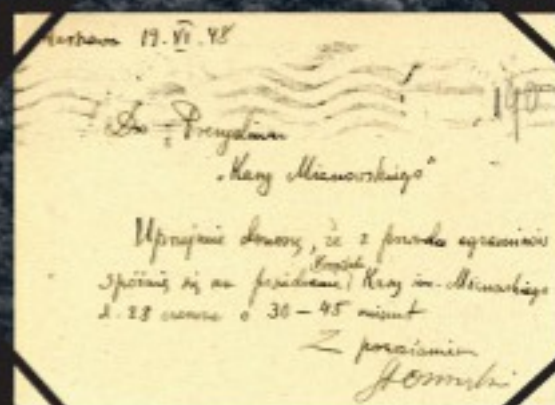 Warszawa 19.VI.48
Do Prezydium
"Kasy Mianowskiego"
Uprzejmie donoszę, że z powodu egzaminów
Komitetu
spóźnię się na posiedzenie Kasy im. Mianowskiego
d. 28 czerwca o 30-45 minut
Z poważaniem